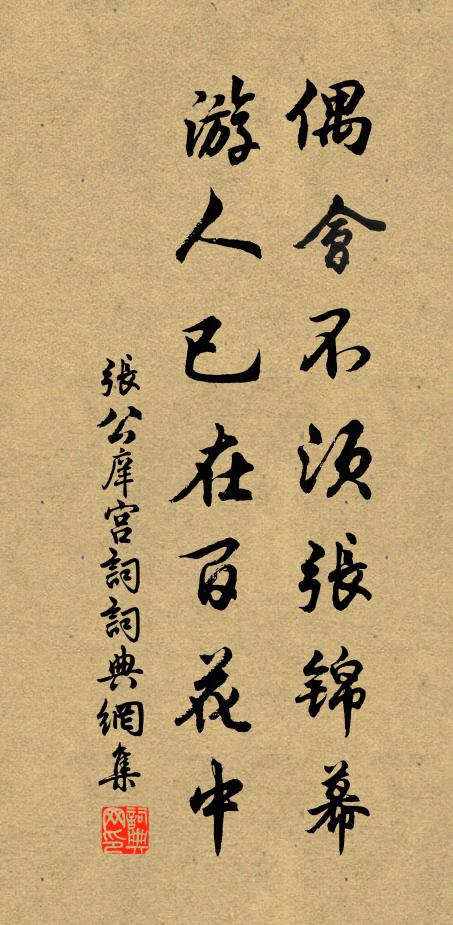 偶會不須張錦幕
游人已在百花中
張公庠宮詞詞典網集
詞典網印